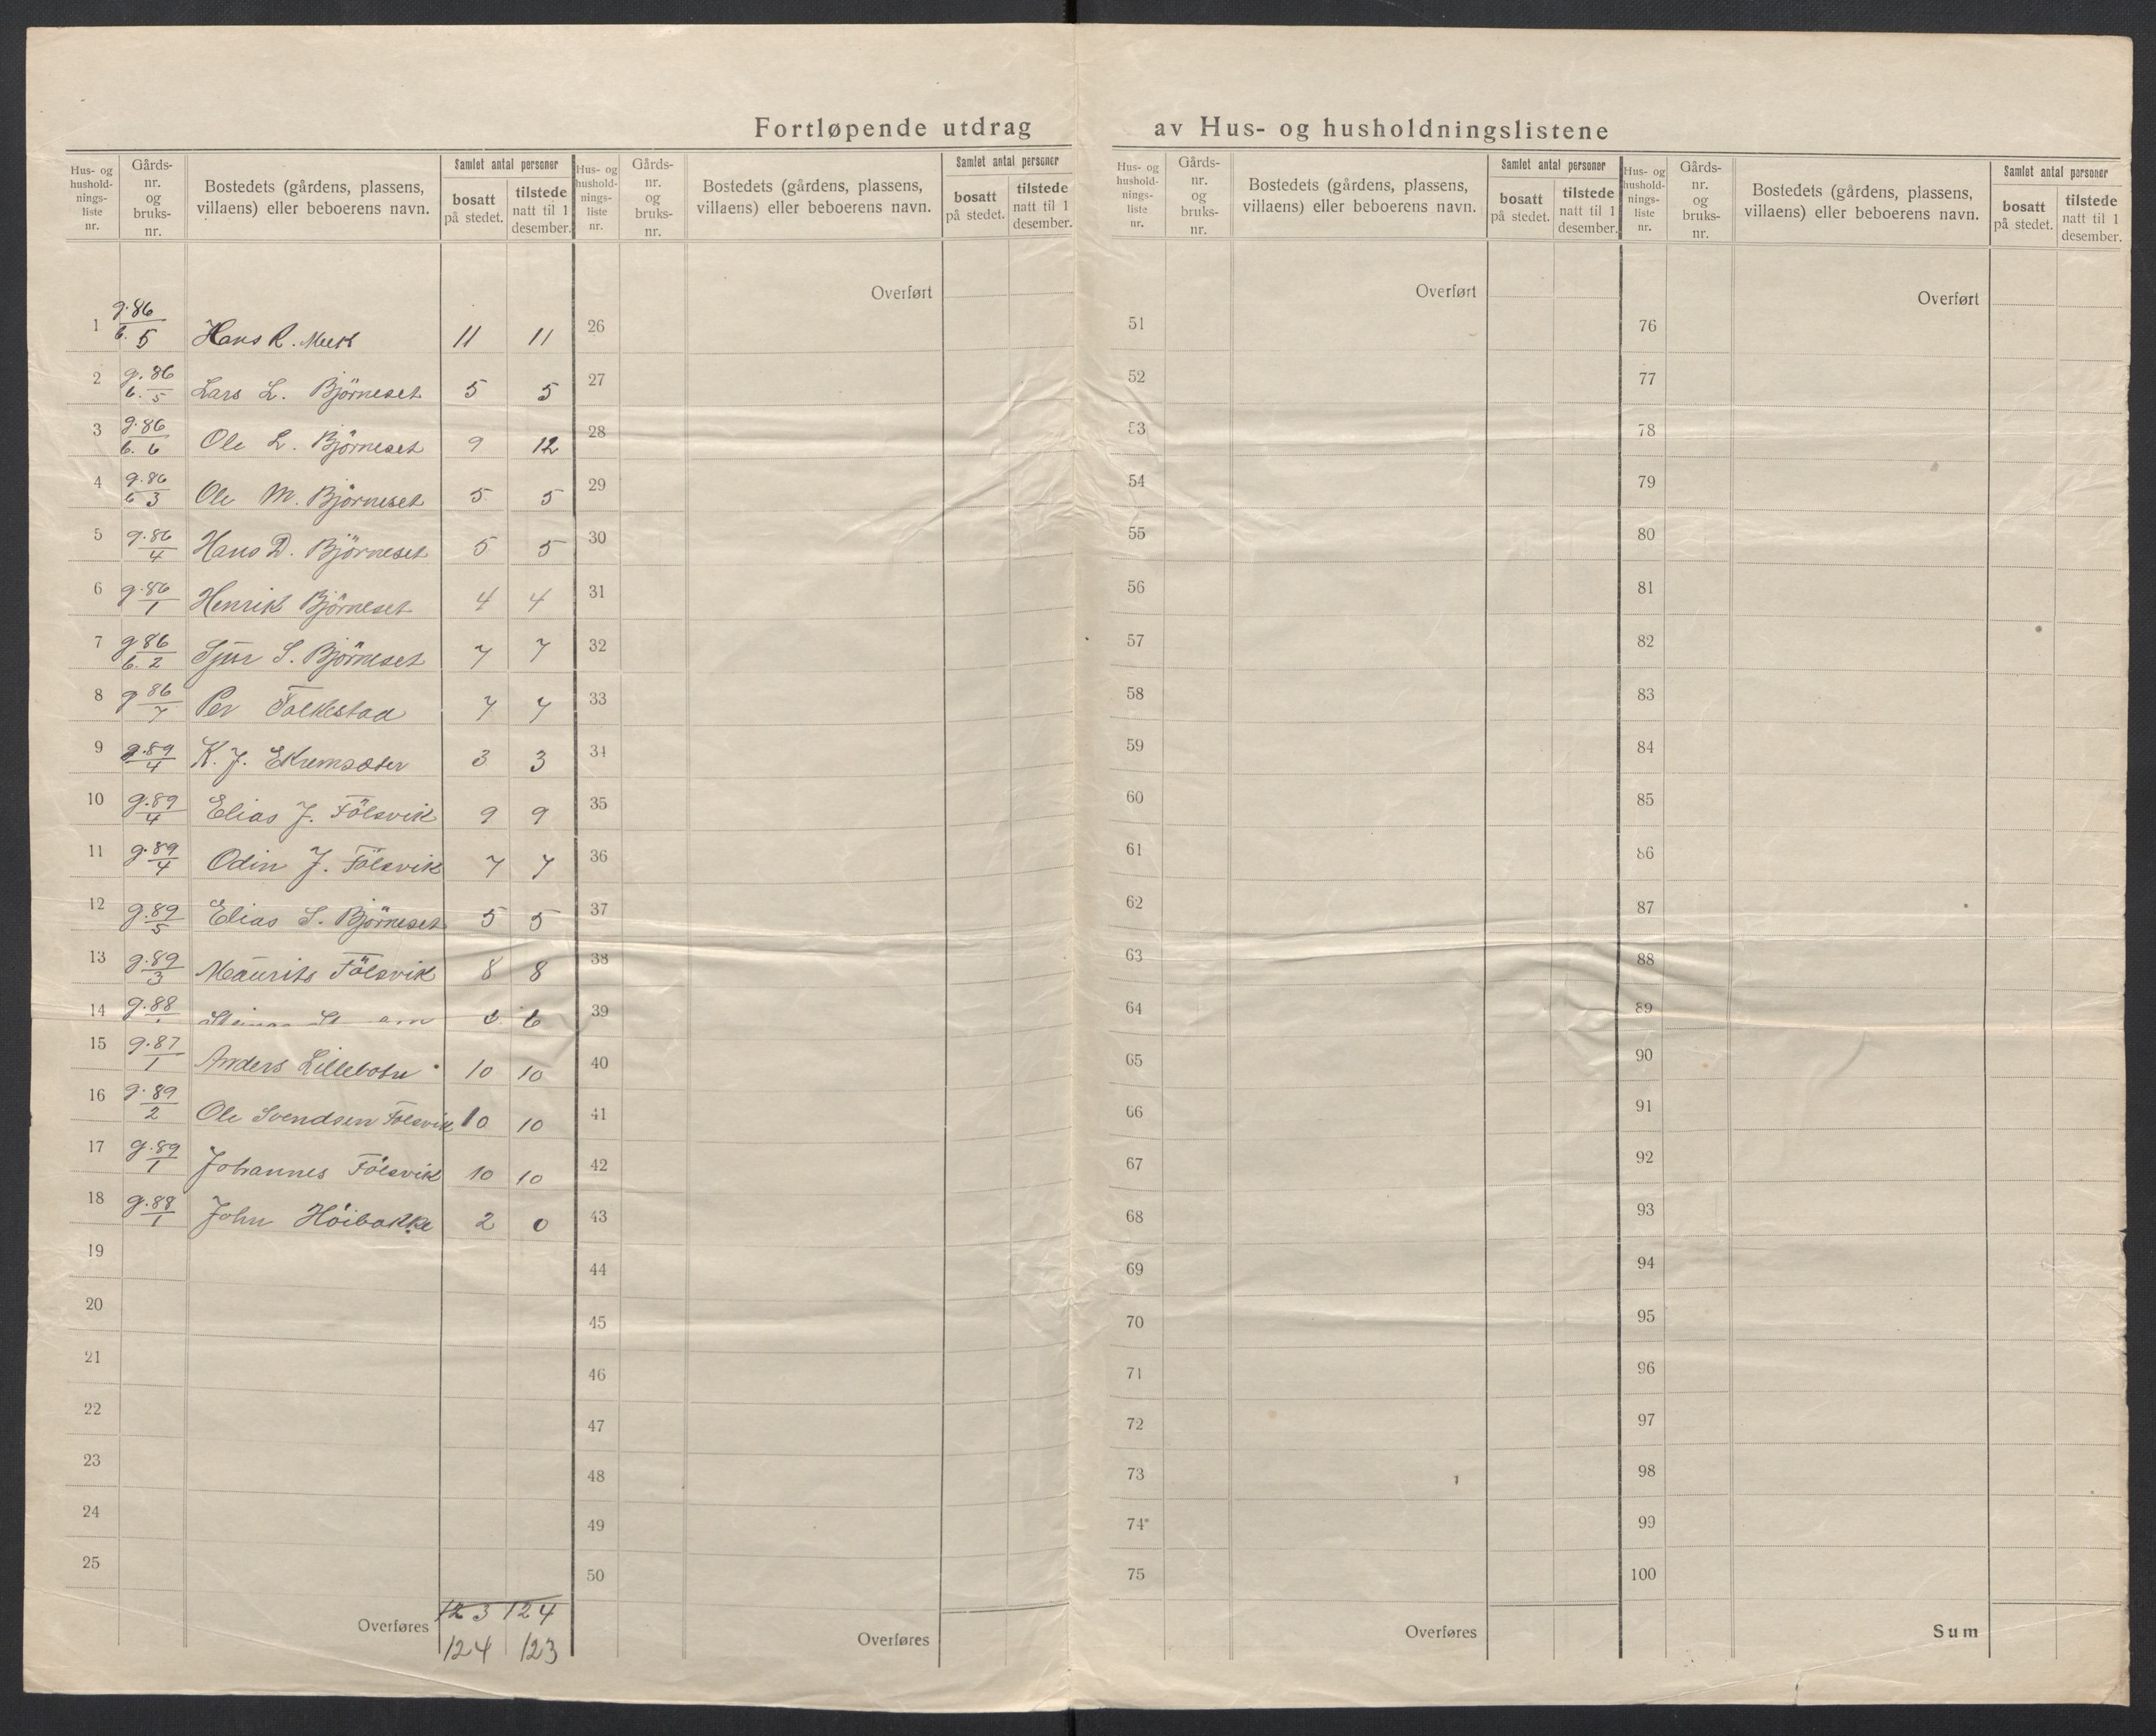 Fortløpende utdrag av Hus- og husholdningslistene
Hus- og hushold- nings- liste nr. | Gårds- nr. og bruks- nr. | Bostedets (gårdens, plassens, villaens) eller beboerens navn. | Samlet antal personer | bosatt på stedet. | tilstede natt til 1 desember.
Hus- og hushold- nings- liste nr. | Gårds- nr. og bruks- nr. | Bostedets (gårdens, plassens, villaens) eller beboerens navn. | Samlet antal personer | bosatt på stedet. | tilstede natt til 1 desember.
Hus- og hushold- nings- liste nr. | Gårds- nr. og bruks- nr. | Bostedets (gårdens, plassens, villaens) eller beboerens navn. | Samlet antal personer | bosatt på stedet. | tilstede natt til 1 desember.
Hus- og hushold- nings- liste nr. | Gårds- nr. og bruks- nr. | Bostedets (gårdens, plassens, villaens) eller beboerens navn. | Samlet antal personer | bosatt på stedet. | tilstede natt til 1 desember.
Overført Overført Overført
1 g.86 b. 5 Hans R. 11 11 26 51 76
2 g.86 b. 5 Lars L. Björneset 5 5 27 52 77
3 g.86 b. 6 Ole L. Björneset 9 12 28 53 78
4 g.86 b 3 Ole M. Björneset 5 5 29 54 79
5 g.86 4 Hans D. Björneset 5 5 30 55 80
6 g.86 1 Henrik Björneset 4 4 31 56 81
7 g 86 b. 2 Sjur S. Björneset 7 7 32 57 82
8 g 86 7 Per Folkestad 7 7 33 58 83
9 g.89 4 K. J. Ekremsæter 3 3 34 59 84
10 g.89 4 Elias J. Fölsvik 9 9 35 60 85
11 g.89 4 Odin J. Fölsvik 7 7 36 61 86
12 g.89 5 Elias S. Björneset 5 5 37 62 87
13 g.89 3 Maurits Fölsvik 8 8 38 63 88
14 g.88 6 39 64 89
15 g.87 1 Anders Lillebotn 10 10 40 65 90
16 g.89 2 Ole Svendsen Fölsvik 10 10 41 66 91
17 g.89 1 Johannes Fölsvik 10 10 42 67 92
18 g.88 1 John Höibakke 2 0 43 68 93
19 44 69 94
20 45 70 95
21 46 71 96
22 47 72 97
23 48 73 98
24 49 74 99
25 50 75 100
123 124
Overføres 124 123 Overføres Overføres Sum